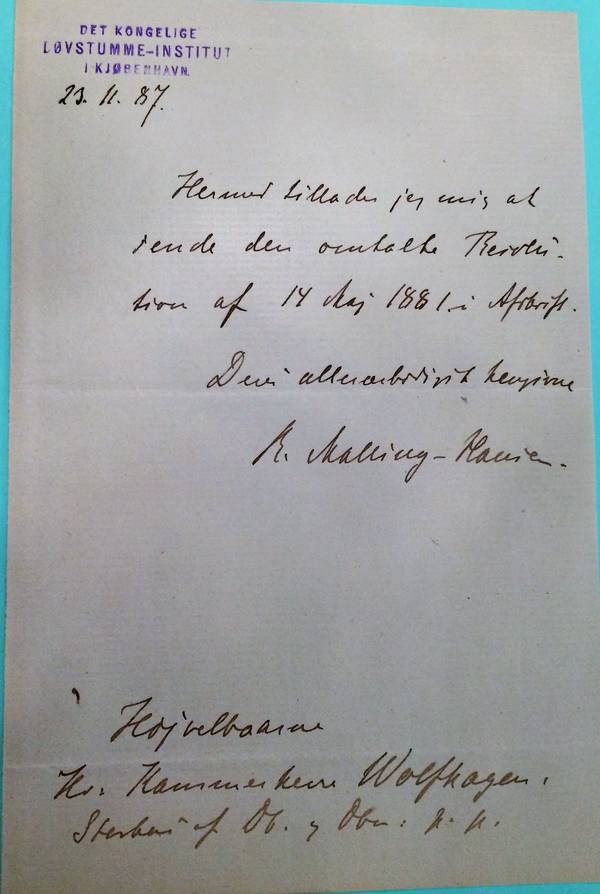 DET KONGELIGE
DØVSTUMME-INSTITUT
I KJØBENHAVN.
23. 11. 87.
Hermed tillader jeg mig at
sende den omtalte Resolu-
tion af 14 Maj 1881 i Afskrift.
Deres allerærbødigst hengivne
R. Malling-Hansen.
Højvelbaarne
Hr. Kammerherre Wolfhagen,
Storkors af Db. og Dbm: p. p.